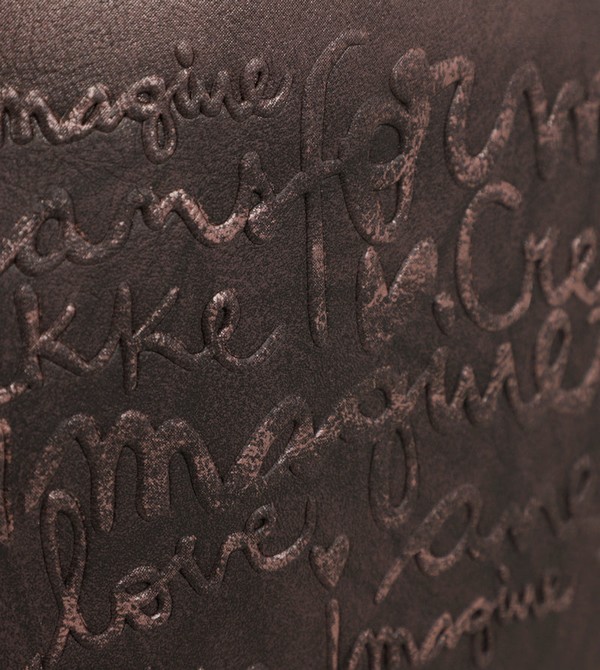 imagine
ansform
kke r. Cre
Imagine
love, ane
Imagine